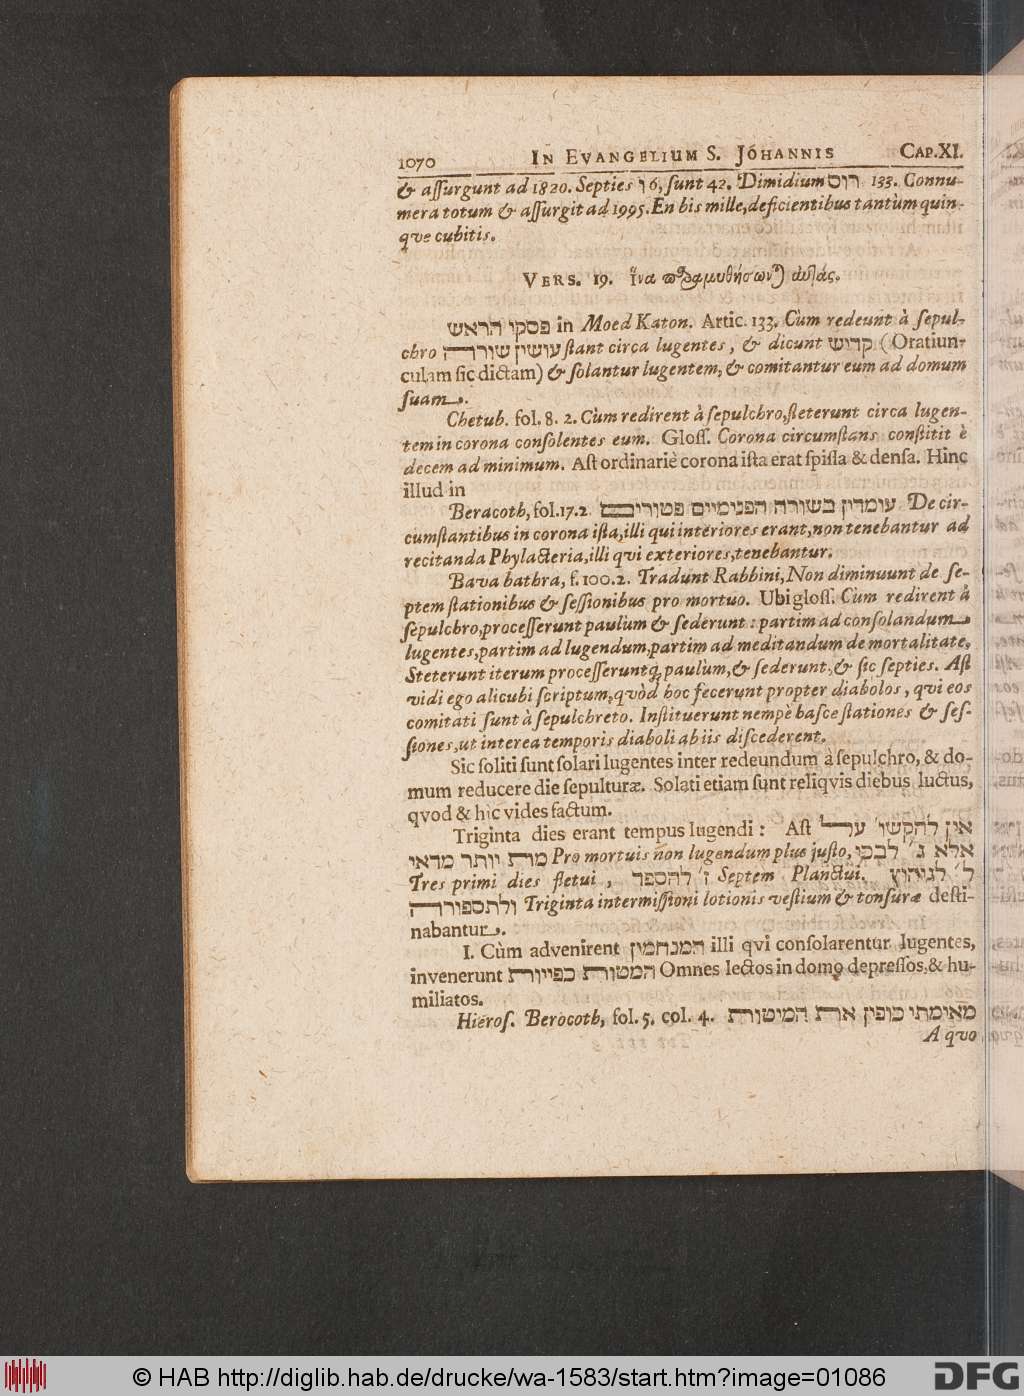 1070 IN EVANGELIUM S. JOHANNIS CAP.XI.
& aſſurgunt ad 1820. Septies ו 6, ſunt 42. Dimidium רוס 133. Connu-
mera totum & aſſurgit ad 1995. En bis mille, deficientibus tantùm quin-
qve cubitis.
VERS. 19. ἵνα παραμυθήσωνται αὐτάς.
פסקי הראש in Moed Katon. Artic. 133. Cùm redeunt à ſepul-
chro עושין שורה ſtant circa lugentes, & dicunt קדיש (Oratiun-
culam ſic dictam) & ſolantur lugentem, & comitantur eum ad domum
ſuam.
Chetub. fol. 8. 2. Cùm redirent à ſepulchro, ſteterunt circa lugen-
tem in corona conſolentes eum. Gloſſ. Corona circumſtans conſtitit è
decem ad minimum. Aſt ordinariè corona iſta erat ſpiſſa & denſa. Hinc
illud in
Beracoth, fol. 17. 2. עומדין בשורה הפנימיים פטורים De cir-
cumſtantibus in corona iſta, illi qui interiores erant, non tenebantur ad
recitanda Phylacteria, illi qvi exteriores, tenebantur.
Bava bathra, f. 100. 2. Tradunt Rabbini, Non diminuunt de ſe-
ptem ſtationibus & ſeſſionibus pro mortuo. Ubi gloſſ. Cùm redirent à
ſepulchro, proceſſerunt paulùm & ſederunt: partim ad conſolandum
lugentes, partim ad lugendum, partim ad meditandum de mortalitate.
Steterunt iterum proceſſeruntq; paulùm, & ſederunt, & ſic ſepties. Aſt
vidi ego alicubi ſcriptum, quòd hoc fecerunt propter diabolos, qvi eos
comitati ſunt à ſepulchreto. Inſtituerunt nempè haſce ſtationes & ſeſ-
ſiones, ut interea temporis diaboli ab iis diſcederent.
Sic ſoliti ſunt ſolari lugentes inter redeundum à ſepulchro, & do-
mum reducere die ſepulturæ. Solati etiam ſunt reliqvis diebus luctus,
qvod & hic vides factum.
Triginta dies erant tempus lugendi: Aſt אין להקשו׳ על
מת יותר מדאי Pro mortuis non lugendum plus juſto, אלא ג׳ לבכי
Tres primi dies fletui, ז׳ להספד Septem Planctui. ל׳ לגיהוץ
ולתספורה Triginta intermiſſioni lotionis veſtium & tonſuræ deſti-
nabantur.
I. Cùm advenirent המנחמין illi qvi conſolarentur lugentes,
invenerunt המטות כפויות Omnes lectos in domo depreſſos, & hu-
miliatos.
Hieroſ. Berocoth, fol. 5. col. 4. מאימתי כופין את המיטות
A quo
© HAB http://diglib.hab.de/drucke/wa-1583/start.htm?image=01086
DFG